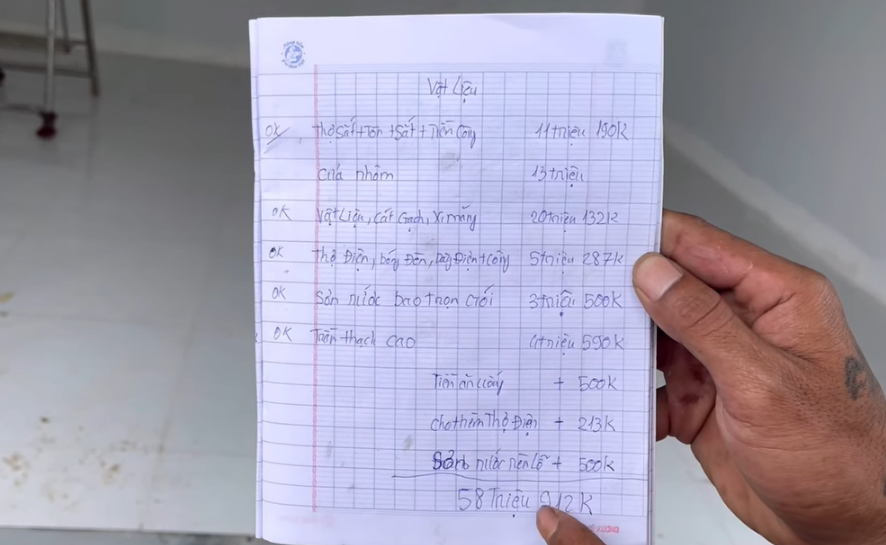 Vật Liệu
OK Thợ Sắt + Tôn + Sắt + Tiền Công 11 triệu 190K
Cửa nhôm 13 triệu
OK Vật Liệu, Cát Gạch, Xi măng 20 triệu 132K
OK Thợ Điện, bóng Đèn, Dây Điện + Công 5 triệu 287K
OK Sơn nước bao trọn Gói 3 triệu 500K
OK Trần thạch cao 4 triệu 590K
Tiền ăn + 500K
cho thêm Thợ Điện + 213K
Sơn nước nên lỗ + 500K
58 Triệu 912K